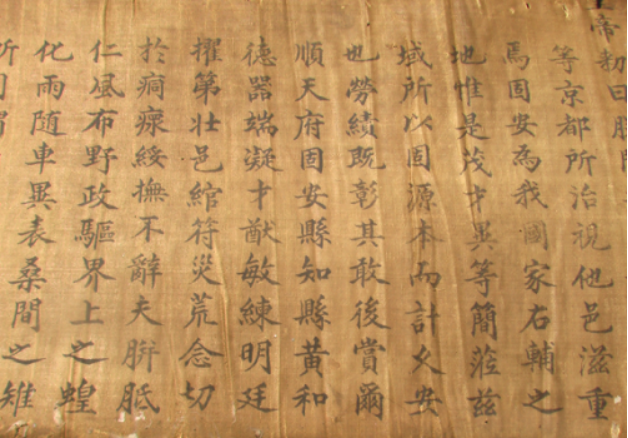 帝勅曰朕
等京都所治視他邑滋重
焉固安為我國家右輔之
地惟是茂才異等簡蒞茲
域所以固源本而計久安
也勞績既彰其敢後賞爾
順天府固安縣知縣黃和
德器端凝才猷敏練明廷
擢第壯邑綰符災荒念切
於痌瘝綏撫不辭夫胼胝
仁風布野政驅界上之蝗
化雨随車異表桑間之雉